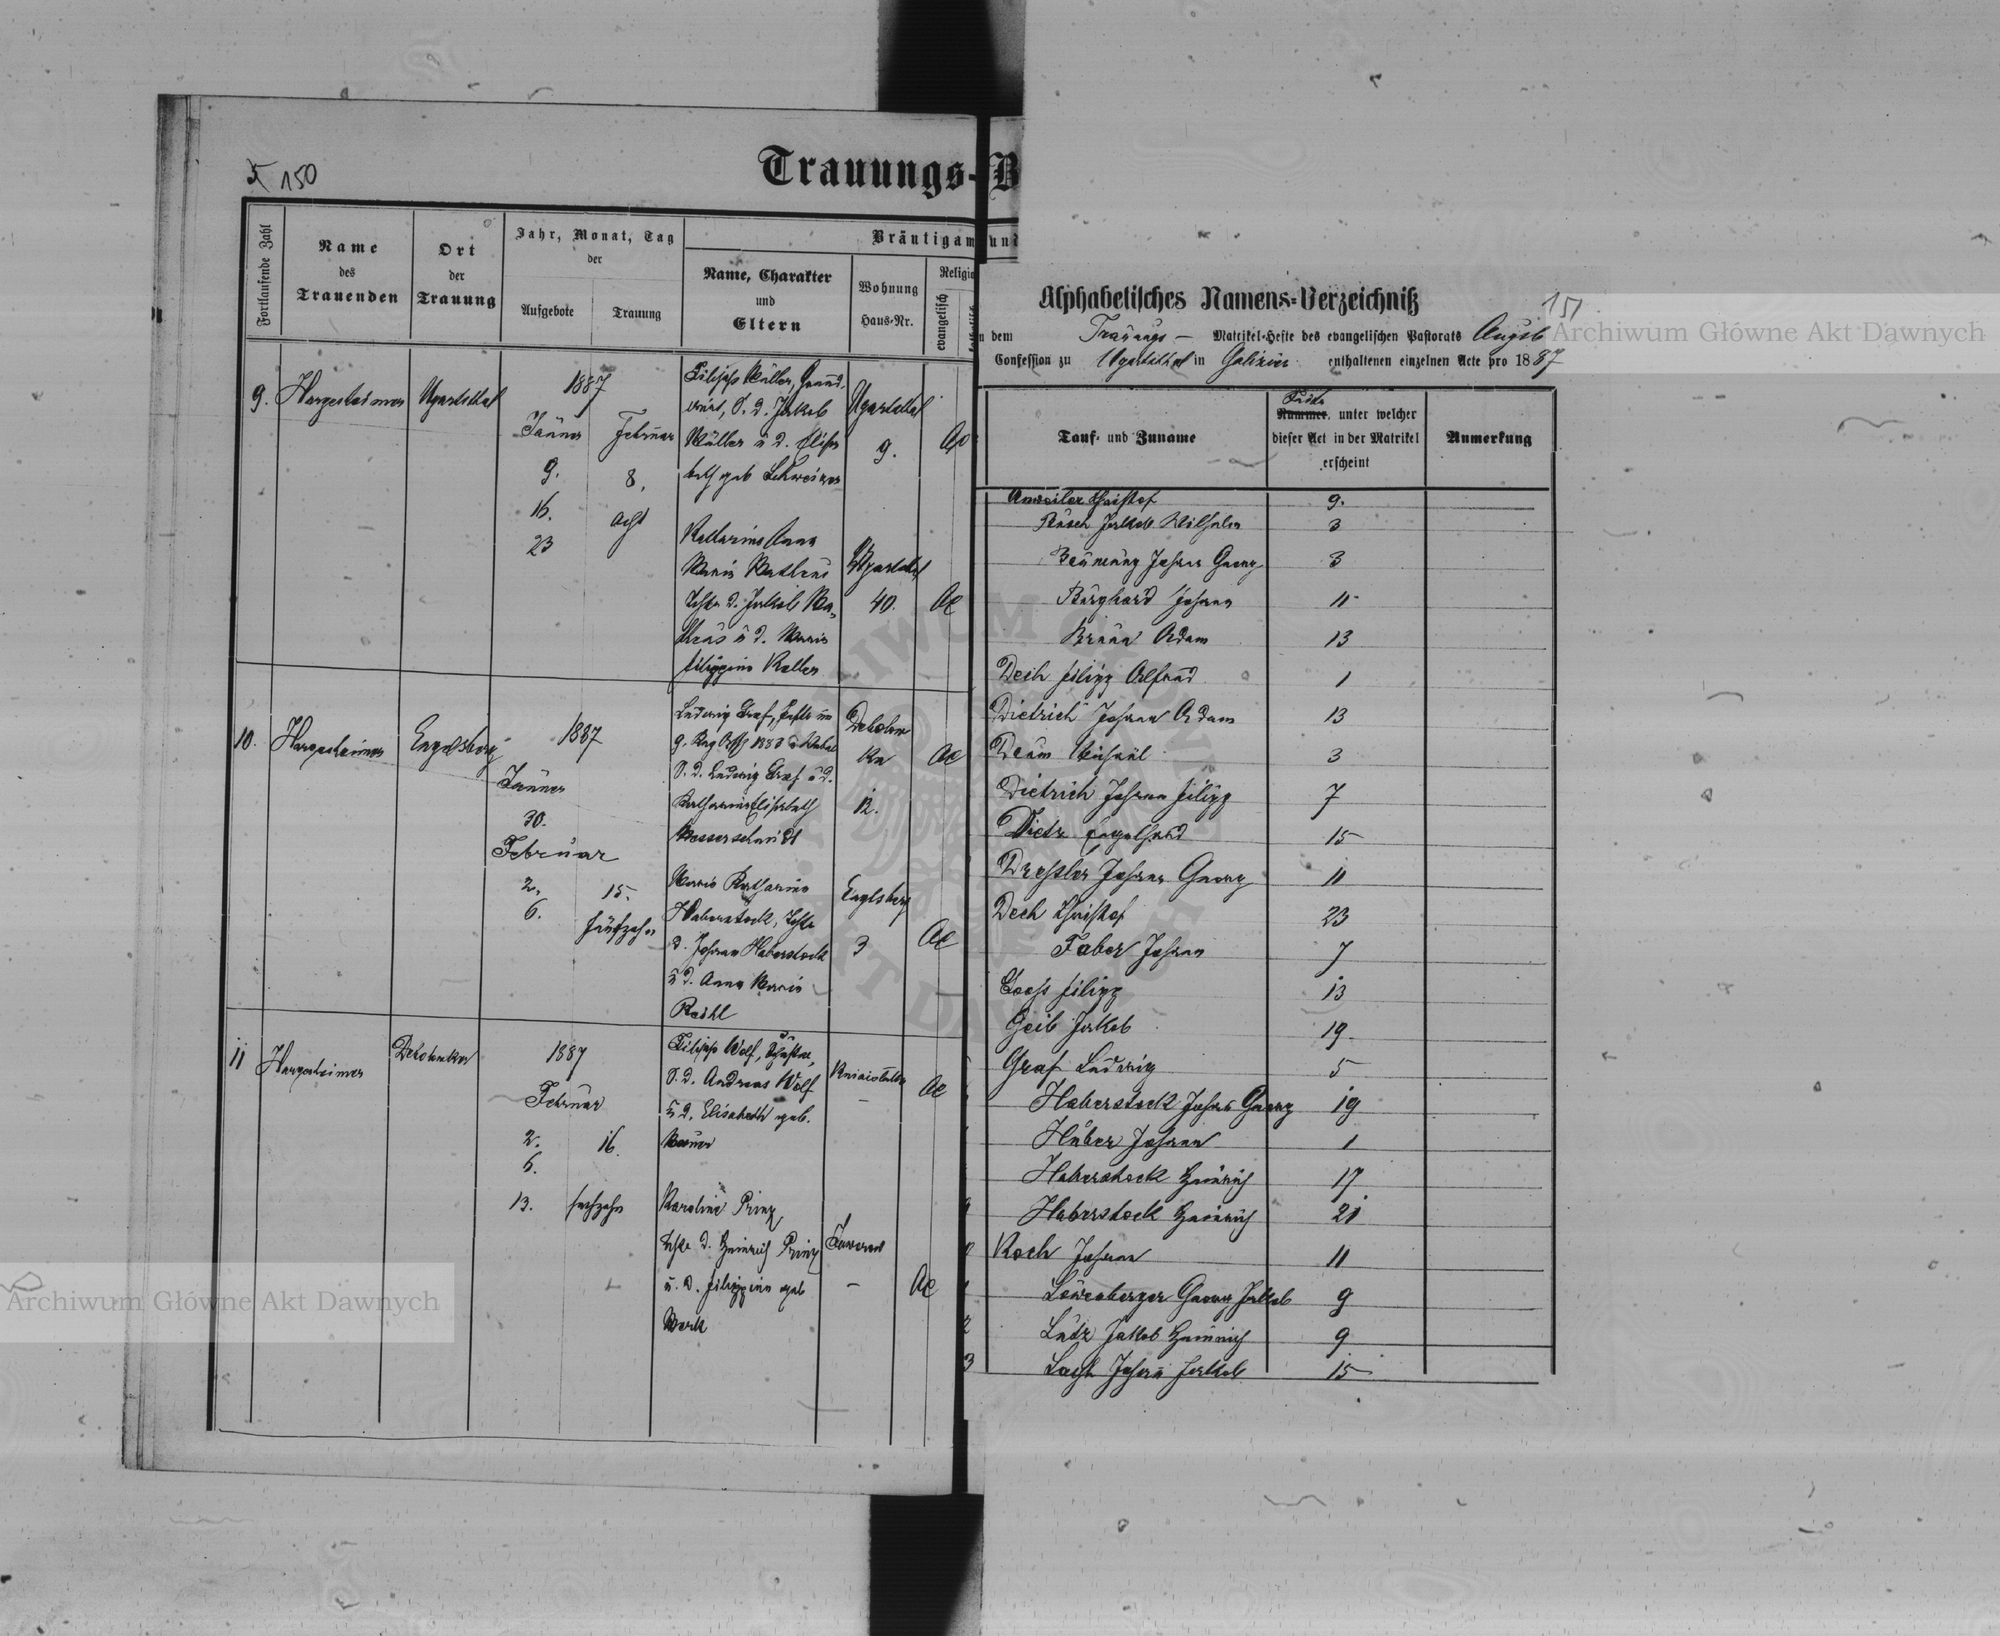 150
Trauungs-B
Fortlaufende Zahl
Name
des
Trauenden
Ort
der
Trauung
Jahr, Monat, Tag
der
Aufgebote
Trauung
Bräutigam und
Name, Charakter
und
Eltern
Wohnung
Haus-Nr.
Religio
evangelisch
9. Hargesheimer Ugartsthal
1887
Jänner Februar
9. 8.
16. acht
23
Filipp Müller, Grund-
wirt, S. d. Jakob
Müller u d. Elisa
beth geb Schweizer
Ugartsthal
9.
AC
Katharina Anna
Maria Matheus
Tchtr d. Jakob Ma-
theus u d. Maria
Filippina Keller
Ugartsthal
40.
AC
10. Hargesheimer Engelsberg
1887
Jänner
30.
Februar
2. 15.
6. fünfzehn
Ludwig Graf,
S. d. Ludwig Graf u d.
Katharina Elisabeth
Messerschmidt
Debolow
ka
12.
AC
Maria Katharina
Haberstock, Tchtr
d. Johann Haberstock
u d. Anna Maria
Engelsberg
3
AC
11 Hargesheimer Debolowka
1887
Februar
2. 16.
6.
13. sechzehn
Filipp Wolf,
S. d. Andreas Wolf
u d. Elisabeth geb.
AC
Karolina Prinz
Tchtr d. Heinrich Prinz
u. d. Filippina geb
Werk
–
AC
Alphabetisches Namens-Verzeichniß
151
n dem Trauungs – Matrikel-Hefte des evangelischen Pastorats Augsb
Confession zu Ugartsthal in Galizien enthaltenen einzelnen Acte pro 1887
Tauf- und Zuname
Seite
Nummer, unter welcher
dieser Act in der Matrikel
erscheint
Anmerkung
Anweiler Christof 9.
Busch Jakob Wilhelm 3
Johann Georg 3
Burghard Johann 11
Braun Adam 13
Filipp 1
Dietrich Johann Adam 13
Michael 3
Dietrich Johann Filipp 7
Dietz Engelhard 15
Dreßler Johann Georg 11
Dech Christof 23
Faber Johann 7
Filipp 13
Geib Jakob 19.
Graf Ludwig 5
Haberstock Johann Georg 19
Huber Johann 1
Haberstock Heinrich 17
Haberstock Heinrich 21
Koch Johann 11
Löwenberger Georg Jakob 9
Lutz Jakob Heinrich 9
3 Johann Jakob 15
Archiwum Główne Akt Dawnych
Archiwum Główne Akt Dawnych